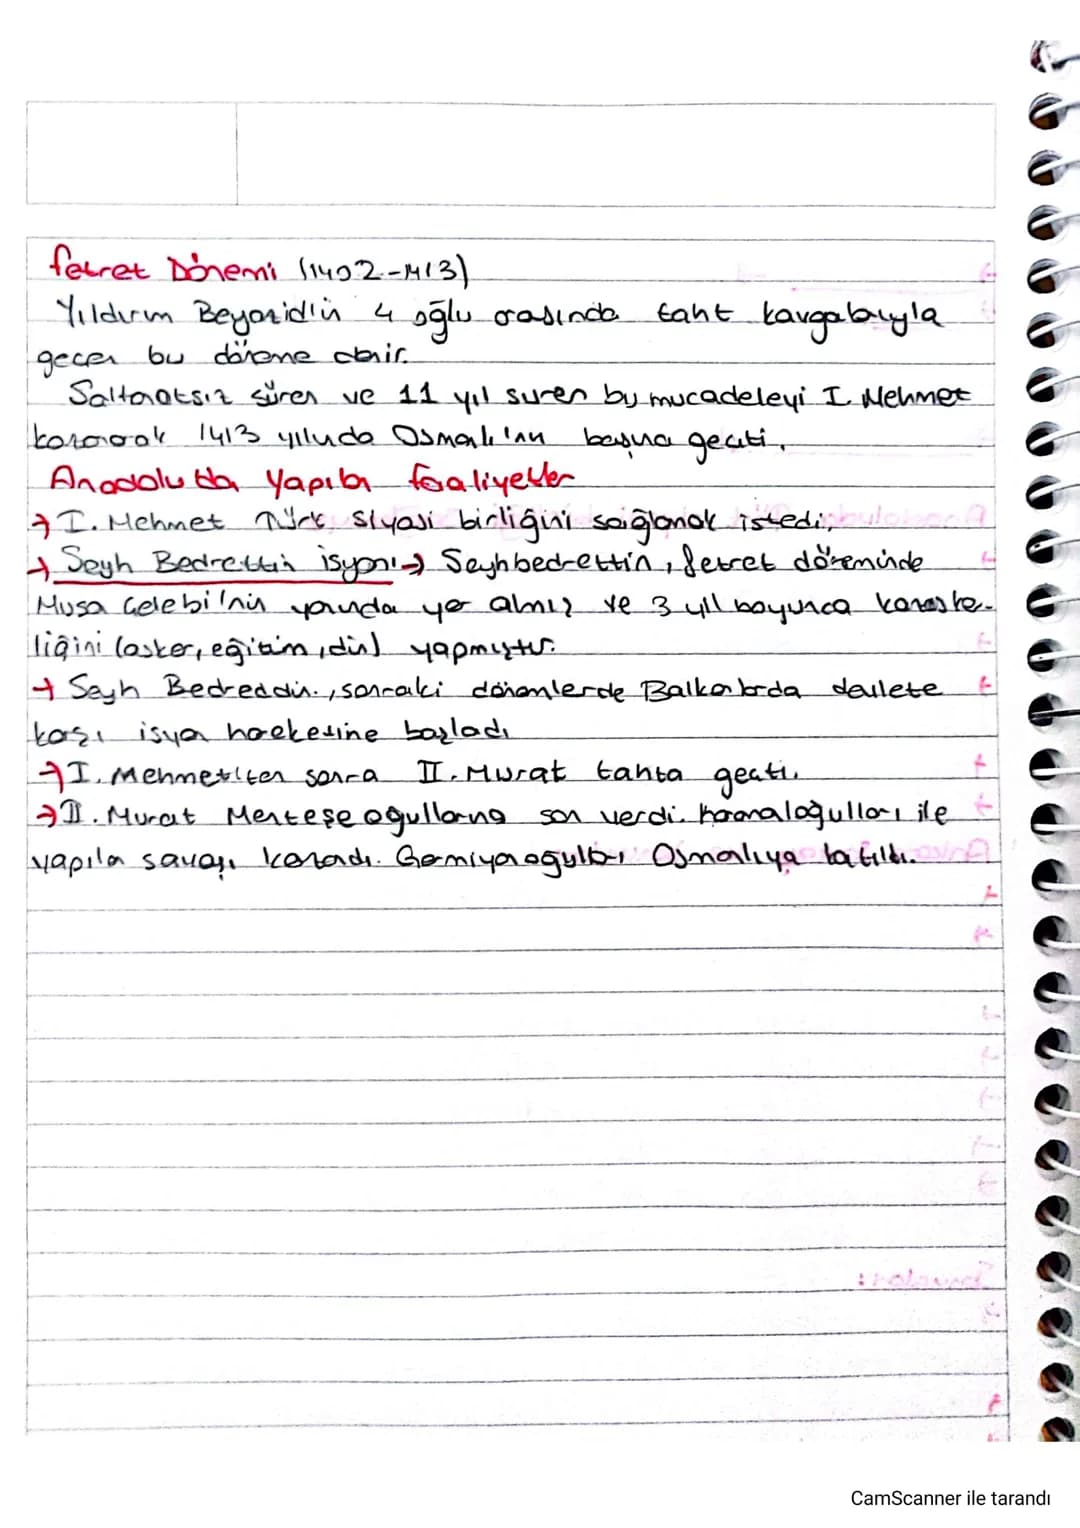 fetret Dönemi (1402-1413)
Yıldırım Beyazid'in 4 oğlu arasında taht kavgalarıyla
geçen bu döneme denir.
Saltanatsız süren ve 11 yıl suren bu mucadeleyi I. Mehmet
kazanarak 1413 yılında Osmanlı'nın başına geçti.
Anadolu'da Yapılan faaliyetler
→ I. Mehmet Türk siyasi birliğini sağlamak istedi.
→ Şeyh Bedrettin isyanı → Şeyhbedrettin, fetret döneminde
Musa Çelebi'nin yanında yer almış ve 3 yıl boyunca kazaske-
liğini (asker, eğitim, din) yapmıştır.
→ Şeyh Bedreddin, sonraki dönemlerde Balkanlarda devlete
karşı isyan hareketine başladı
→ I. Mehmet'ten sonra II. Murat tahta geçti.
→ II. Murat Menteşeoğullarına son verdi. Karamanoğulları ile
yapılan savaşı kazandı. Germiyanoğulları Osmanlıya katıldı.
CamScanner ile tarandı